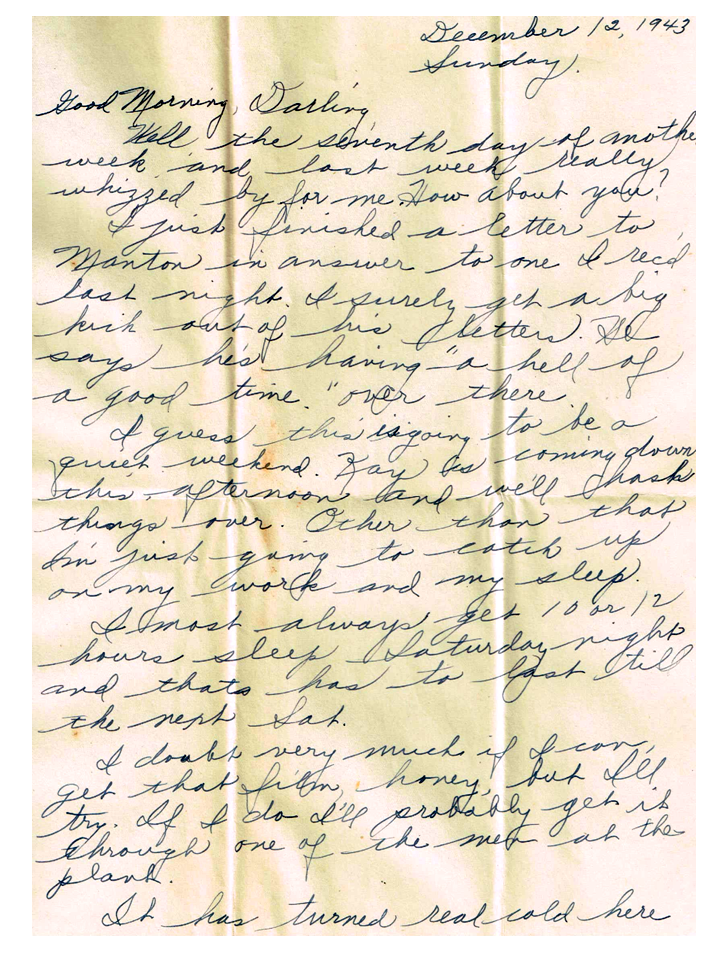 December 12, 1943
Sunday.
Good Morning, Darling
Well the seventh day of anothe
week and last week really
whizzed by for me. How about you?
I just finished a letter to
Manton in answer to one I recd
last night. I surely get a big
kick out of his letters. He
says he's having "a hell of
a good time." over there
I guess this is going to be a
quiet weekend. Kay is coming down
this afternoon and we'll hash
things over. Other than that
I'm just going to catch up
on my work and my sleep.
I most always get 10 or 12
hours sleep Saturday night
and thats has to last till
the next Sat.
I doubt very much if I can
get that film, honey, but I'll
try. If I do I'll probably get it
through one of the men at the
plant.
It has turned real cold here